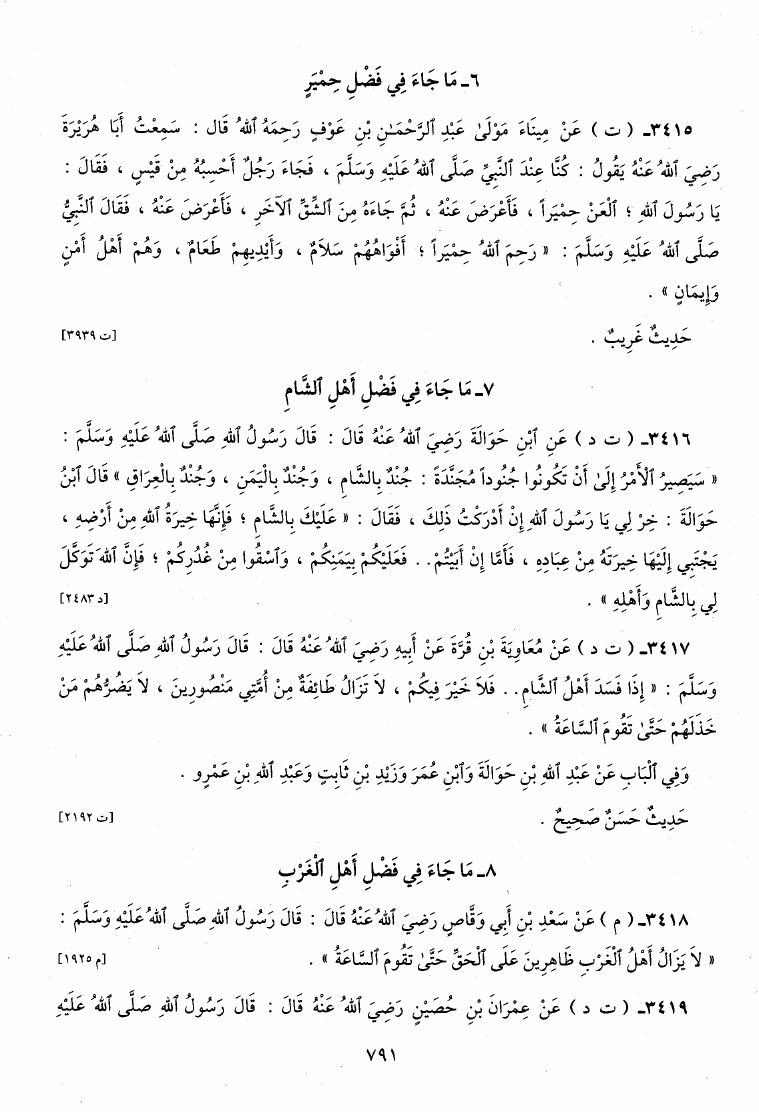 ٦ـ مَا جَاءَ فِي فَضْلِ حِمْيَرٍ
٣٤١٥ـ ( ت ) عَنْ مِينَاءَ مَوْلَىٰ عَبْدِ ٱلرَّحْمَـٰنِ بْنِ عَوْفٍ رَحِمَهُ ٱللهُ قَالَ : سَمِعْتُ أَبَا هُرَيْرَةَ
رَضِيَ ٱللهُ عَنْهُ يَقُولُ : كُنَّا عِنْدَ ٱلنَّبِيِّ صَلَّى ٱللهُ عَلَيْهِ وَسَلَّمَ ، فَجَاءَ رَجُلٌ أَحْسِبُهُ مِنْ قَيْسٍ ، فَقَالَ :
يَا رَسُولَ ٱللهِ ؛ ٱلْعَنْ حِمْيَراً ، فَأَعْرَضَ عَنْهُ ، ثُمَّ جَاءَهُ مِنَ ٱلشِّقِّ ٱلآخَرِ ، فَأَعْرَضَ عَنْهُ ، فَقَالَ ٱلنَّبِيُّ
صَلَّى ٱللهُ عَلَيْهِ وَسَلَّمَ : « رَحِمَ ٱللهُ حِمْيَراً ؛ أَفْوَاهُهُمْ سَلاَمٌ ، وَأَيْدِيهِمْ طَعَامٌ ، وَهُمْ أَهْلُ أَمْنٍ
وَإِيمَانٍ » .
حَدِيثٌ غَرِيبٌ . [ت ٣٩٣٩]
٧ـ مَا جَاءَ فِي فَضْلِ أَهْلِ ٱلشَّامِ
٣٤١٦ـ ( ت د ) عَنِ ٱبْنِ حَوَالَةَ رَضِيَ ٱللهُ عَنْهُ قَالَ : قَالَ رَسُولُ ٱللهِ صَلَّى ٱللهُ عَلَيْهِ وَسَلَّمَ :
« سَيَصِيرُ ٱلأَمْرُ إِلَىٰ أَنْ تَكُونُوا جُنُوداً مُجَنَّدَةً : جُنْدٌ بِالشَّامِ ، وَجُنْدٌ بِالْيَمَنِ ، وَجُنْدٌ بِالْعِرَاقِ » قَالَ ٱبْنُ
حَوَالَةَ : خِرْ لِي يَا رَسُولَ ٱللهِ إِنْ أَدْرَكْتُ ذَلِكَ ، فَقَالَ : « عَلَيْكَ بِالشَّامِ ؛ فَإِنَّهَا خِيرَةُ ٱللهِ مِنْ أَرْضِهِ ،
يَجْتَبِي إِلَيْهَا خِيرَتَهُ مِنْ عِبَادِهِ ، فَأَمَّا إِنْ أَبَيْتُمْ.. فَعَلَيْكُمْ بِيَمَنِكُمْ ، وَٱسْقُوا مِنْ غُدُرِكُمْ ؛ فَإِنَّ ٱللهَ تَوَكَّلَ
لِي بِالشَّامِ وَأَهْلِهِ » . [د ٢٤٨٣]
٣٤١٧ـ ( ت د ) عَنْ مُعَاوِيَةَ بْنِ قُرَّةَ عَنْ أَبِيهِ رَضِيَ ٱللهُ عَنْهُ قَالَ : قَالَ رَسُولُ ٱللهِ صَلَّى ٱللهُ عَلَيْهِ
وَسَلَّمَ : « إِذَا فَسَدَ أَهْلُ ٱلشَّامِ.. فَلاَ خَيْرَ فِيكُمْ ، لاَ تَزَالُ طَائِفَةٌ مِنْ أُمَّتِي مَنْصُورِينَ ، لاَ يَضُرُّهُمْ مَنْ
خَذَلَهُمْ حَتَّىٰ تَقُومَ ٱلسَّاعَةُ » .
وَفِي ٱلْبَابِ عَنْ عَبْدِ ٱللهِ بْنِ حَوَالَةَ وَٱبْنِ عُمَرَ وَزَيْدِ بْنِ ثَابِتٍ وَعَبْدِ ٱللهِ بْنِ عَمْرٍو .
حَدِيثٌ حَسَنٌ صَحِيحٌ . [ت ٢١٩٢]
٨ـ مَا جَاءَ فِي فَضْلِ أَهْلِ ٱلْغَرْبِ
٣٤١٨ـ ( م ) عَنْ سَعْدِ بْنِ أَبِي وَقَّاصٍ رَضِيَ ٱللهُ عَنْهُ قَالَ : قَالَ رَسُولُ ٱللهِ صَلَّى ٱللهُ عَلَيْهِ وَسَلَّمَ :
« لاَ يَزَالُ أَهْلُ ٱلْغَرْبِ ظَاهِرِينَ عَلَى ٱلْحَقِّ حَتَّىٰ تَقُومَ ٱلسَّاعَةُ » . [م ١٩٢٥]
٣٤١٩ـ ( ت د ) عَنْ عِمْرَانَ بْنِ حُصَيْنٍ رَضِيَ ٱللهُ عَنْهُ قَالَ : قَالَ رَسُولُ ٱللهِ صَلَّى ٱللهُ عَلَيْهِ
٧٩١